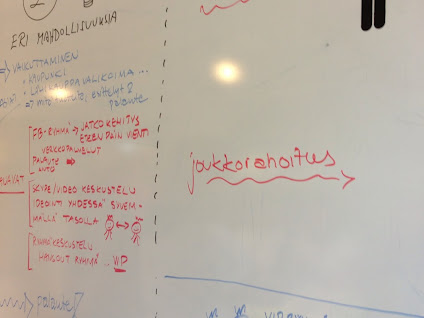 ERI MAHDOLLISUUKSIA
VAIKUTTAMINEN
KAUPUNKI
VALIKOIMA ...
palaute
FB-RYHMÄ → JATKOKEHITYS
ETEENPÄIN VIENTI
VERKKOPALVELUT
PALAUTE
ANTO
SKYPE/VIDEO KESKUSTELU
IDEOINTI YHDESSÄ SYVEM-
MÄLLÄ TASOLLA
RYHMÄKESKUSTELU
HANGOUT RYHMÄ ... VIP
palaute
joukkorahoitus